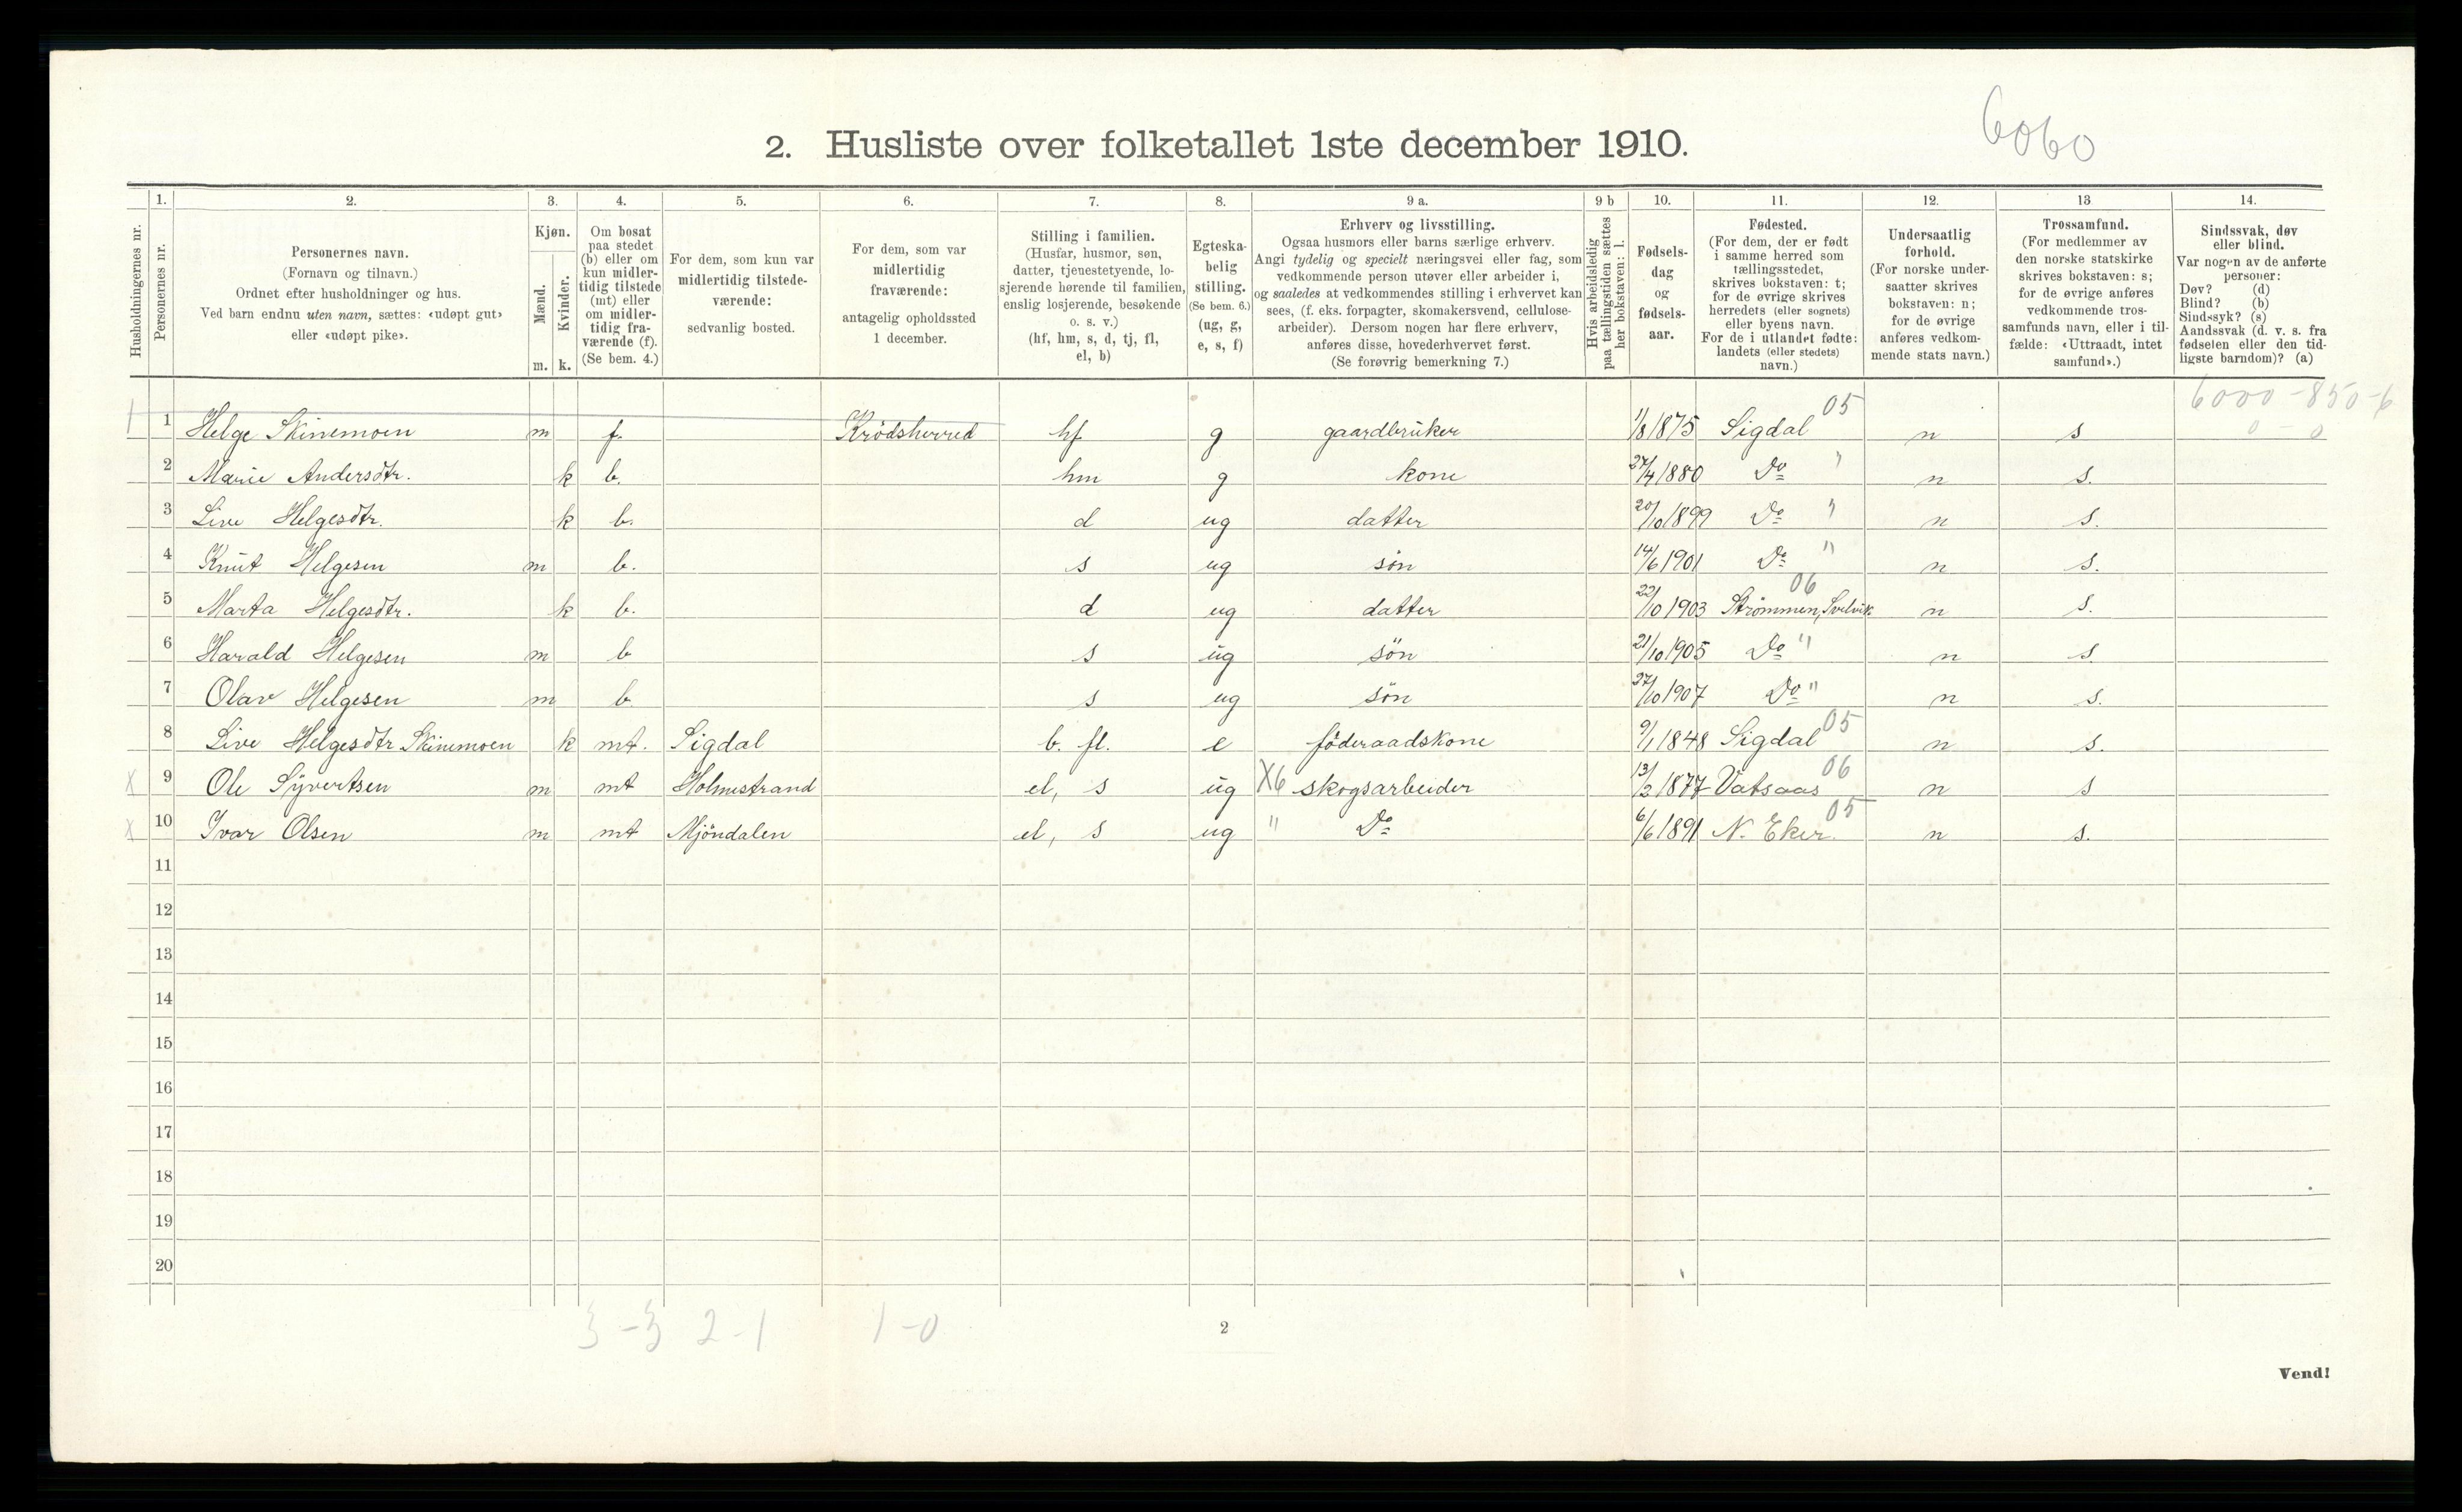 6060
2. Husliste over folketallet 1ste december 1910.
1. 2. 3. 4. 5. 6. 7. 8. 9 a. 9 b 10. 11. 12. 13 14.
Husholdningernes nr.
Personernes nr.
Personernes navn.
(Fornavn og tilnavn.)
Ordnet efter husholdninger og hus.
Ved barn endnu uten navn, sættes: «udøpt gut»
eller «udøpt pike».
Kjøn.
Mænd.
Kvinder.
m. k.
Om bosat
paa stedet
(b) eller om
kun midler-
tidig tilstede
(mt) eller
om midler-
tidig fra-
værende (f).
(Se bem. 4.)
For dem, som kun var
midlertidig tilstede-
værende:
sedvanlig bosted.
For dem, som var
midlertidig
fraværende:
antagelig opholdssted
1 december.
Stilling i familien.
(Husfar, husmor, søn,
datter, tjenestetyende, lo-
sjerende hørende til familien,
enslig losjerende, besøkende
o. s. v.)
(hf, hm, s, d, tj, fl,
el, b)
Egteska-
belig
stilling.
(Se bem. 6.)
(ug, g,
e, s, f)
Erhverv og livsstilling.
Ogsaa husmors eller barns særlige erhverv.
Angi tydelig og specielt næringsvei eller fag, som
vedkommende person utøver eller arbeider i,
og saaledes at vedkommendes stilling i erhvervet kan
sees, (f. eks. forpagter, skomakersvend, cellulose-
arbeider). Dersom nogen har flere erhverv,
anføres disse, hovederhvervet først.
(Se forøvrig bemerkning 7.)
Hvis arbeidsledig
paa tællingstiden sættes
her bokstaven: l.
Fødsels-
dag
og
fødsels-
aar.
Fødested.
(For dem, der er født
i samme herred som
tællingsstedet,
skrives bokstaven: t;
for de øvrige skrives
herredets (eller sognets)
eller byens navn.
For de i utlandet fødte:
landets (eller stedets)
navn.)
Undersaatlig
forhold.
(For norske under-
saatter skrives
bokstaven: n;
for de øvrige
anføres vedkom-
mende stats navn.)
Trossamfund.
(For medlemmer av
den norske statskirke
skrives bokstaven: s;
for de øvrige anføres
vedkommende tros-
samfunds navn, eller i til-
fælde: «Uttraadt, intet
samfund».)
Sindssvak, døv
eller blind.
Var nogen av de anførte
personer:
Døv? (d)
Blind? (b)
Sindssyk? (s)
Aandssvak (d. v. s. fra
fødselen eller den tid-
ligste barndom)? (a)
6000-850-6
0 - 0
1 1 Helge Skinemoen m f. Krödsherred hf g gaardbruker 1/8 1875 Sigdal 05 n s
2 Marie Andersdtr. k b. hm g kone 27/4 1880 Do " n s.
3 Live Helgesdtr. k b. d ug datter 20/10 1899 Do " n s.
4 Knut Helgesen m b. s ug sön 14/6 1901 Do " n s.
5 Marta Helgesdtr. k b. d ug datter 22/10 1903 Strömmen, Svelvik 06 n s.
6 Harald Helgesen m b s ug sön 21/10 1905 Do " n s.
7 Olav Helgesen m b s ug sön 27/10 1907 Do " n s.
8 Live Helgesdtr Skinemoen k mt. Sigdal b. fl. e föderaadskone 9/1 1848 Sigdal 05 n s.
X 9 Ole Syvertsen m mt Holmestrand el, s ug X6 skogsarbeider 13/2 1877 Vatsaas 06 n s
X 10 Ivar Olsen m mt Mjöndalen el, s ug " Do 6/6 1891 N. Eker. 05 n s.
11
12
13
14
15
16
17
18
19
20
3-3 2-1 1-0
2
Vend!